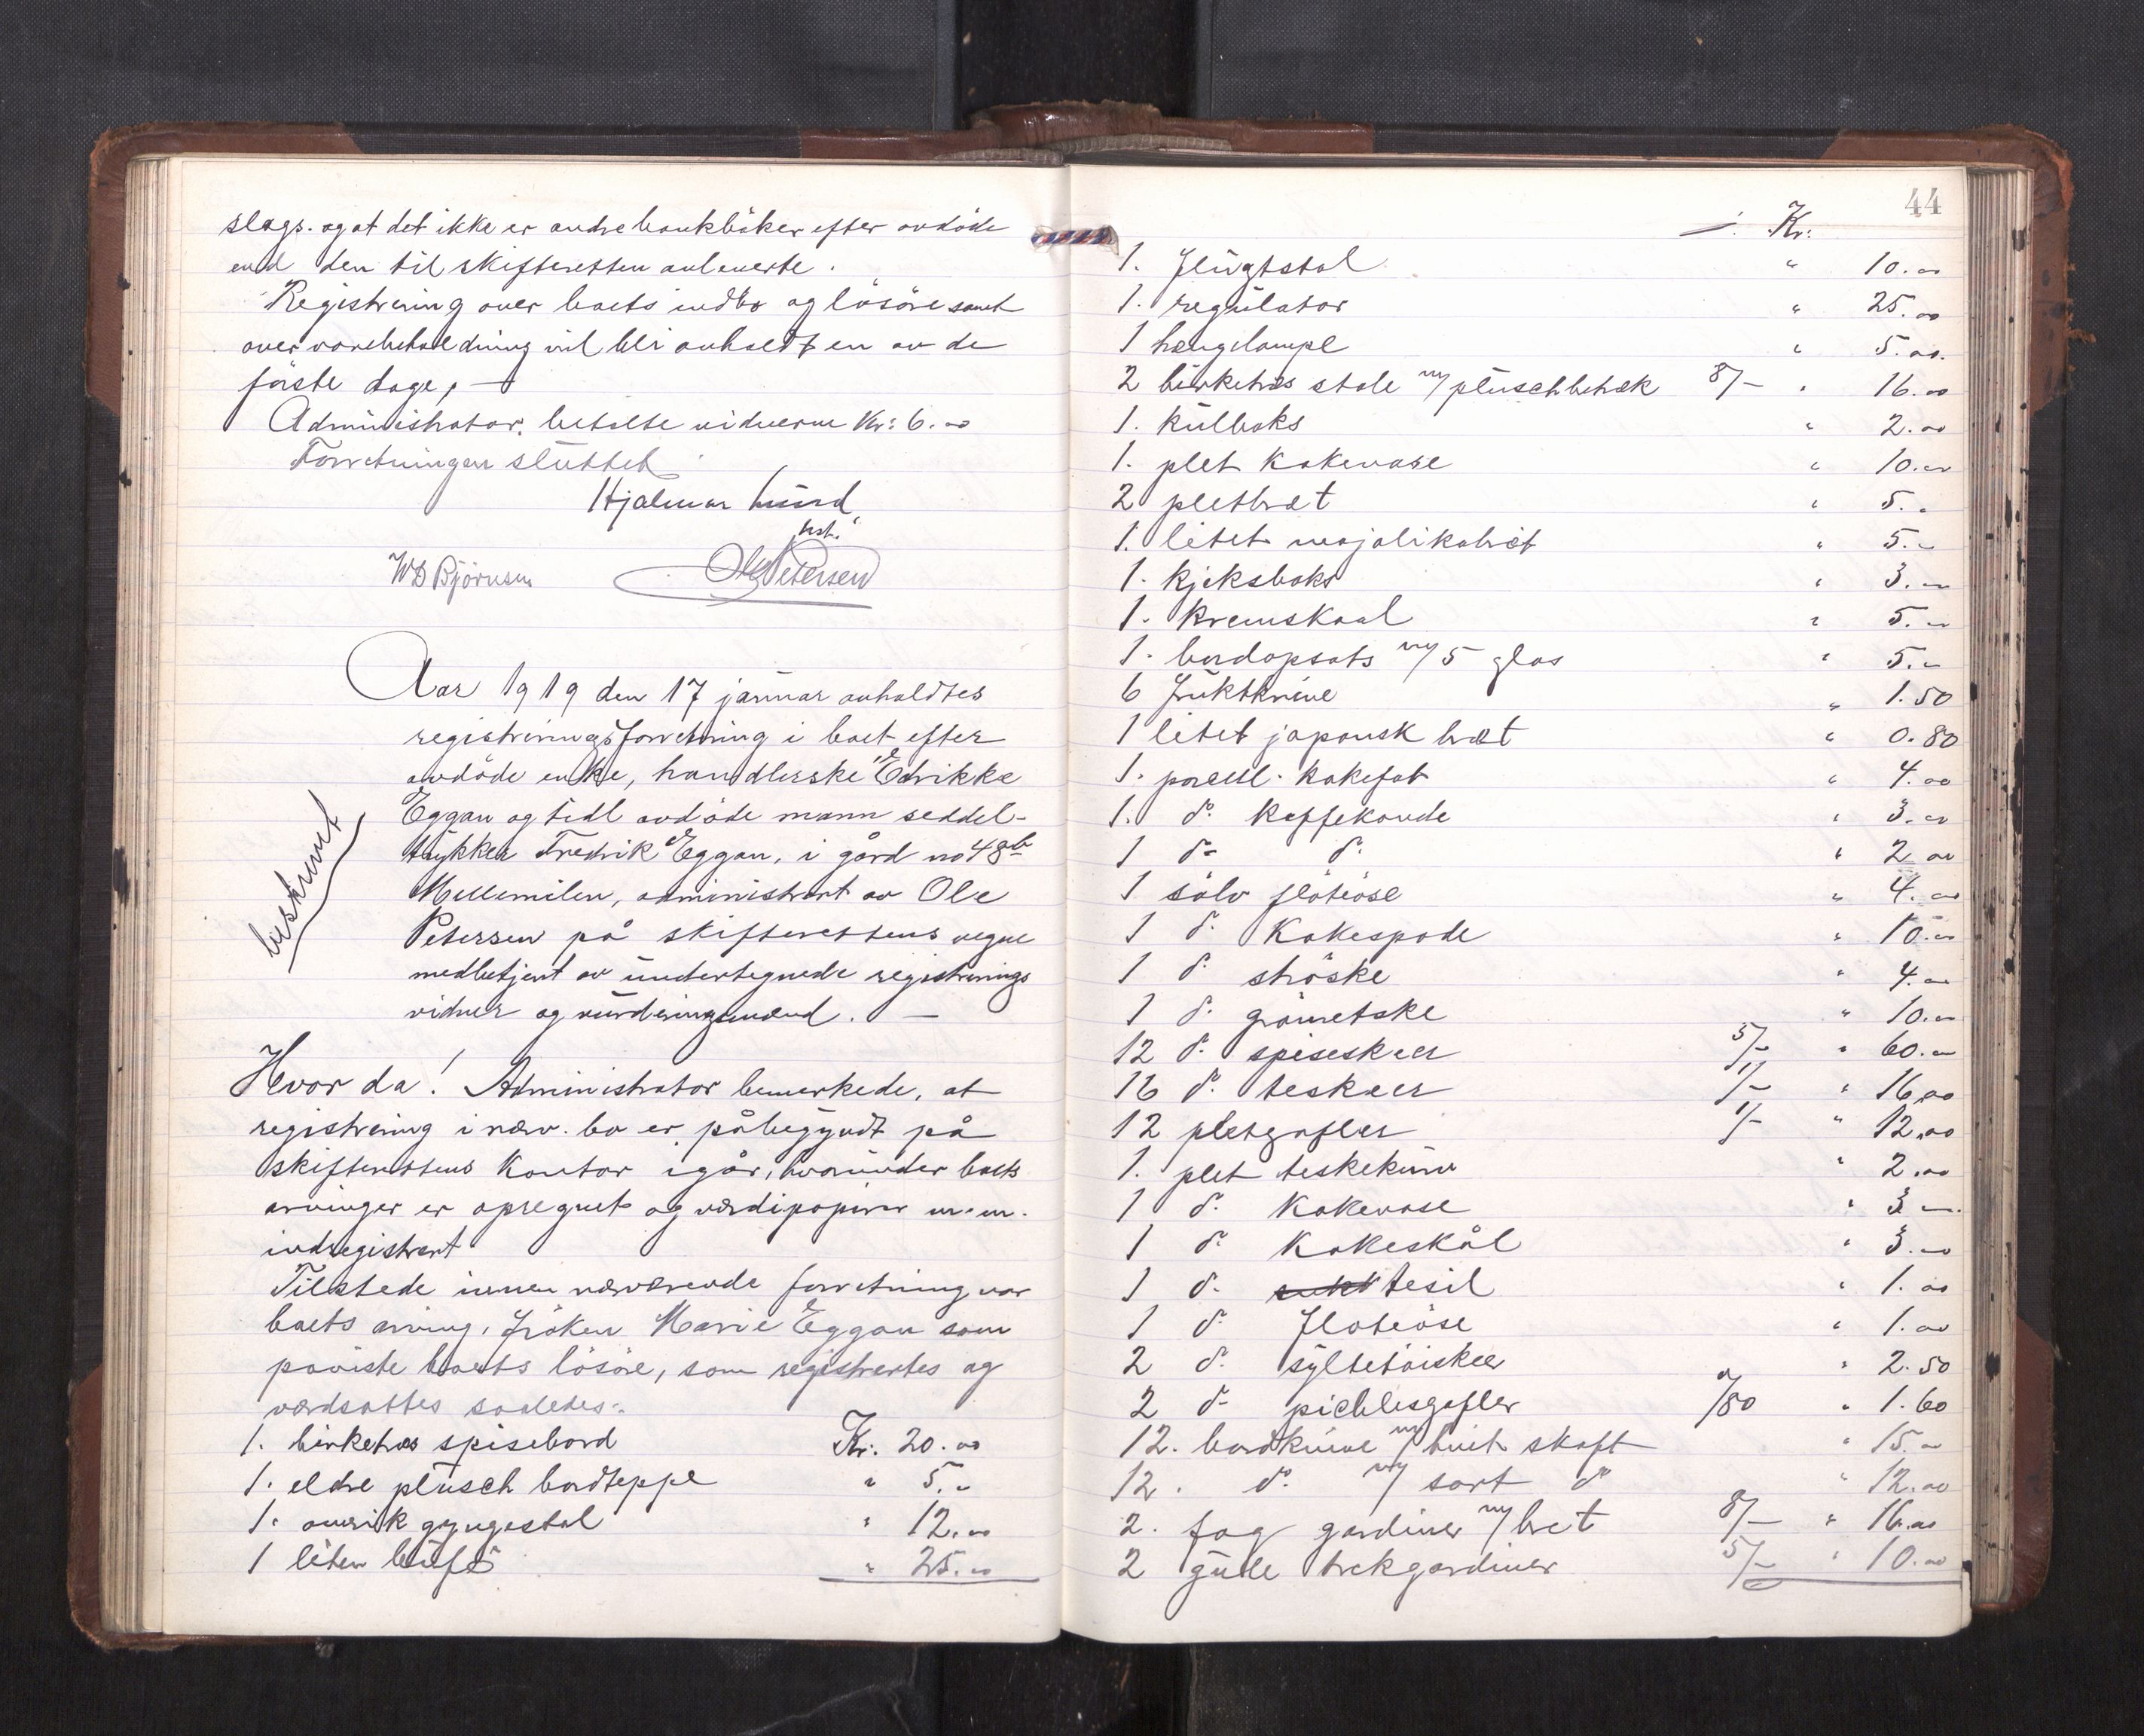 slags. og at det ikke er andre bankbøker efter avdøde
end den til skifteretten anleverte.
Registrering over boets indbo og løsøre samt
over varebeholdning vil bli avholdt en av de
første dage, —
Administrator betalte vidnerne Kr: 6.00
Forretningen sluttet
Hjalmar Lund
kst.
WD Bjørnsen Ole Petersen
Aar 1919 den 17 januar avholdtes
registreringsforretning i boet efter
avdøde enke, handlerske Edrikke
Eggan og tidl avdøde mann seddel-
trykker Fredrik Eggan, i gård no 48b
Mellemilen, administrert av Ole
Petersen på skifterettens vegne
medbetjent av undertegnede registrerings
vidner og vurderingsmænd. —
beskrevet
Hvor da! Administrator bemerkede, at
registrering i nærv. bo er påbegyndt på
skifterettens Kontor igår, hvorunder boets
arvinger er opregnet og værdipapirer m.m.
indregistrert
Tilstede under nærværende forretning var
boets arving, frøken Marie Eggan som
paaviste boets løsøre, som registrertes og
værdsattes saaledes:
1. birketræs spisebord Kr. 20.00
1. eldre plusch bordteppe " 5.-
1. amrik gyngestol " 12.00
1 liten buffé " 25.00
44
Kr:
1. flugtstol " 10.00
1. regulator " 25.00
1 hengelampe " 5.00.
2 birketræs stole m/ pluschbetræk 8/- " 16.00
1. kulboks " 2.00
1. plet kakevase " 10.00
2 pletbræt " 5.-
1. litet majolikabræt " 5.-
1. kjeksboks " 3.-
1. kremskaal " 5.-
1. bordopsats m/ 5 glas " 5.-
6 fruktknive " 1.50
1 litet japansk bræt " 0.80
1. porcell. kakefat " 4.00
1. do kaffekande " 3.00
1 do do " 2 00
1 sølv fløteøse " 4.00
1 do Kakespade " 10.00
1 do strøske " 4.00
1 do grønnetske " 10.00
12 do spiseskeer 5/- " 60.00
16 do teskeer 1/- " 16.00
12 pletgafler 1/- " 12.00
1. plet teskekurv " 2.00
1 do Kakevase " 3.-
1 do Kakeskål " 3.00
1 do tesil " 1.00
1 do Fløteøse " 1.00
2 do syltetøiskeer " 2.50
2 do picklesgafler a/80 " 1.60
12. bordknive m/ hvit skaft " 15.-
12. do m/ sort do " 12.00
2. fag gardiner m/ bret 8/- " 16.00
2 gule trekgardiner 5/- " 10.00